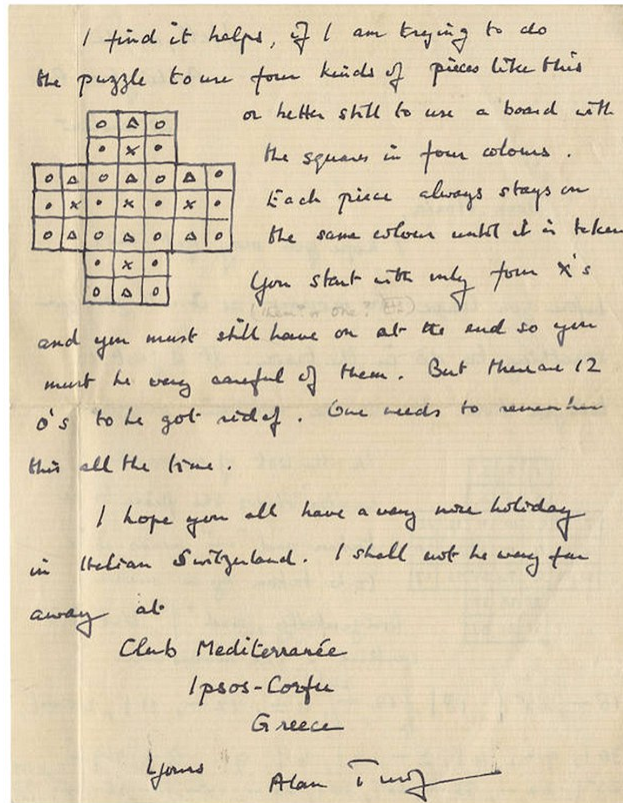 I find it helps, if I am trying to do
the puzzle to use four kinds of pieces like this
or better still to use a board with
the squares in four colours.
Each piece always stays on
the same colour until it is taken
You start with only four x's
and you must still have on at the end so you
must be very careful of them. But there are 12
O's to be got rid of. One needs to remember
this all the time.
I hope you all have a very nice holiday
in Italian Switzerland. I shall not be very far
away at
Club Mediterranée
Ipsos-Corfu
Greece
Yours
Alan Turing